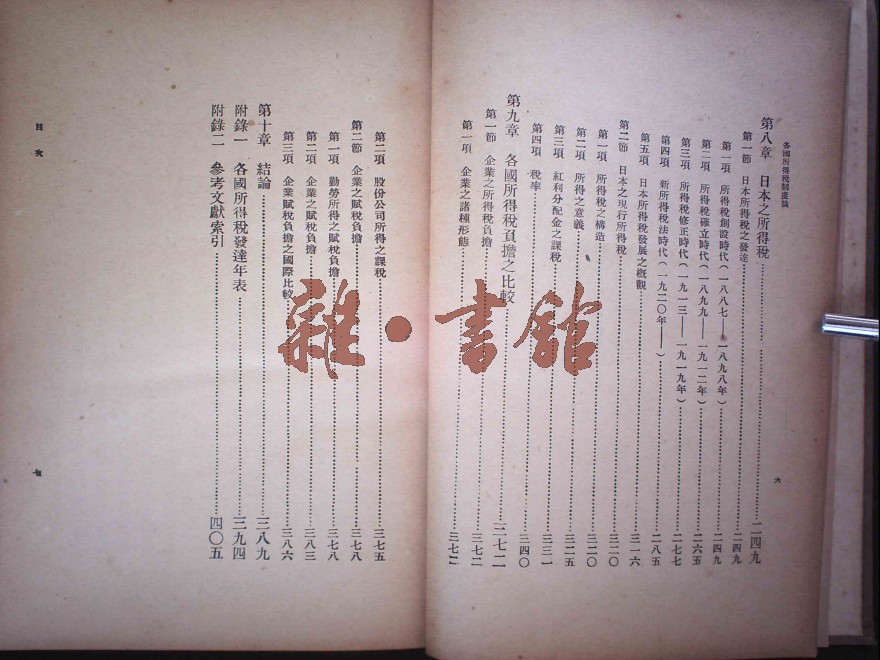 各國所得稅制度論
第八章 日本之所得稅……二四九
第一節 日本所得稅之發達……二四九
第一項 所得稅創設時代(一八八七——一八九八年)……二四九
第二項 所得稅確立時代(一八九九——一九一二年)……二六五
第三項 所得稅修正時代(一九一三——一九一九年)……二七七
第四項 新所得稅法時代(一九二〇年——)……二八五
第五項 日本所得稅發展之概觀……三一六
第二節 日本之現行所得稅……三二〇
第一項 所得稅之構造……三二〇
第二項 所得之意義……三二五
第三項 紅利分配金之課稅……三三一
第四項 稅率……三四〇
第九章 各國所得稅負擔之比較……三七二
第一節 企業之所得稅負擔……三七二
第一項 企業之諸種形態……三七二
六
第二項 股份公司所得之課稅……三七五
第二節 企業之賦稅負擔……三七八
第一項 勤勞所得之賦稅負擔……三七八
第二項 企業之賦稅負擔……三八三
第三項 企業賦稅負擔之國際比較……三八六
第十章 結論……三八九
附錄一 各國所得稅發達年表……三九四
附錄二 參考文獻索引……四〇五
目次
七
雜·書館